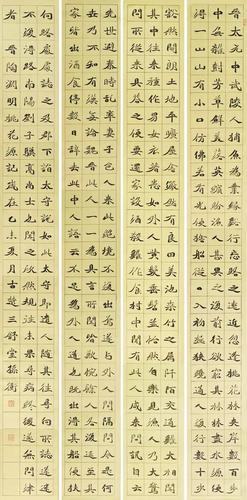 晉太元中武陵人捕魚為業緣溪行忘路之遠近忽逢桃花林夾岸數百步
中無雜樹芳草鮮美落英繽紛漁人甚異之復前行欲窮其林林盡水源便
得一山山有小口彷彿若有光便捨船從口入初極狹纔通人復行數十步
豁然開朗土地平曠屋舍儼然有良田美池桑竹之屬阡陌交通雞犬相聞
其中往來種作男女衣著悉如外人黃髮垂髫並怡然自樂見漁人乃大驚
問所從來具答之便要還家設酒殺雞作食村中聞有此人咸來問訊自云
先世避秦時亂率妻子邑人來此絕境不復出焉遂與外人間隔問今是何
世乃不知有漢無論魏晉此人一一為具言所聞皆歎惋餘人各復延至其
家皆出酒食停數日辭去此中人語云不足為外人道也既出得其船便扶
向路處處誌之及郡下詣太守說如此太守即遣人隨其往尋向所誌遂迷
不復得路南陽劉子驥高尚士也聞之欣然規往未果尋病終後遂無問津
者 晉陶淵明桃花源記歲在乙未夏月古逸三舒堂孫衛